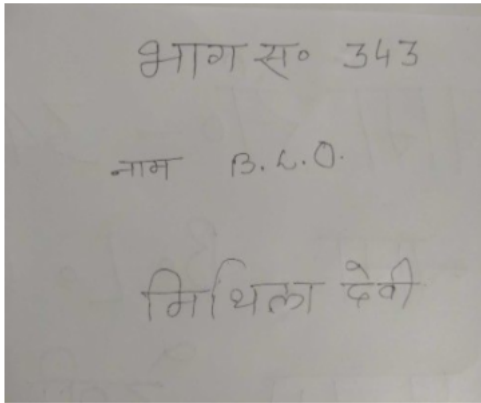 भाग स॰ 343
नाम B.L.O.
मिथिला देवी